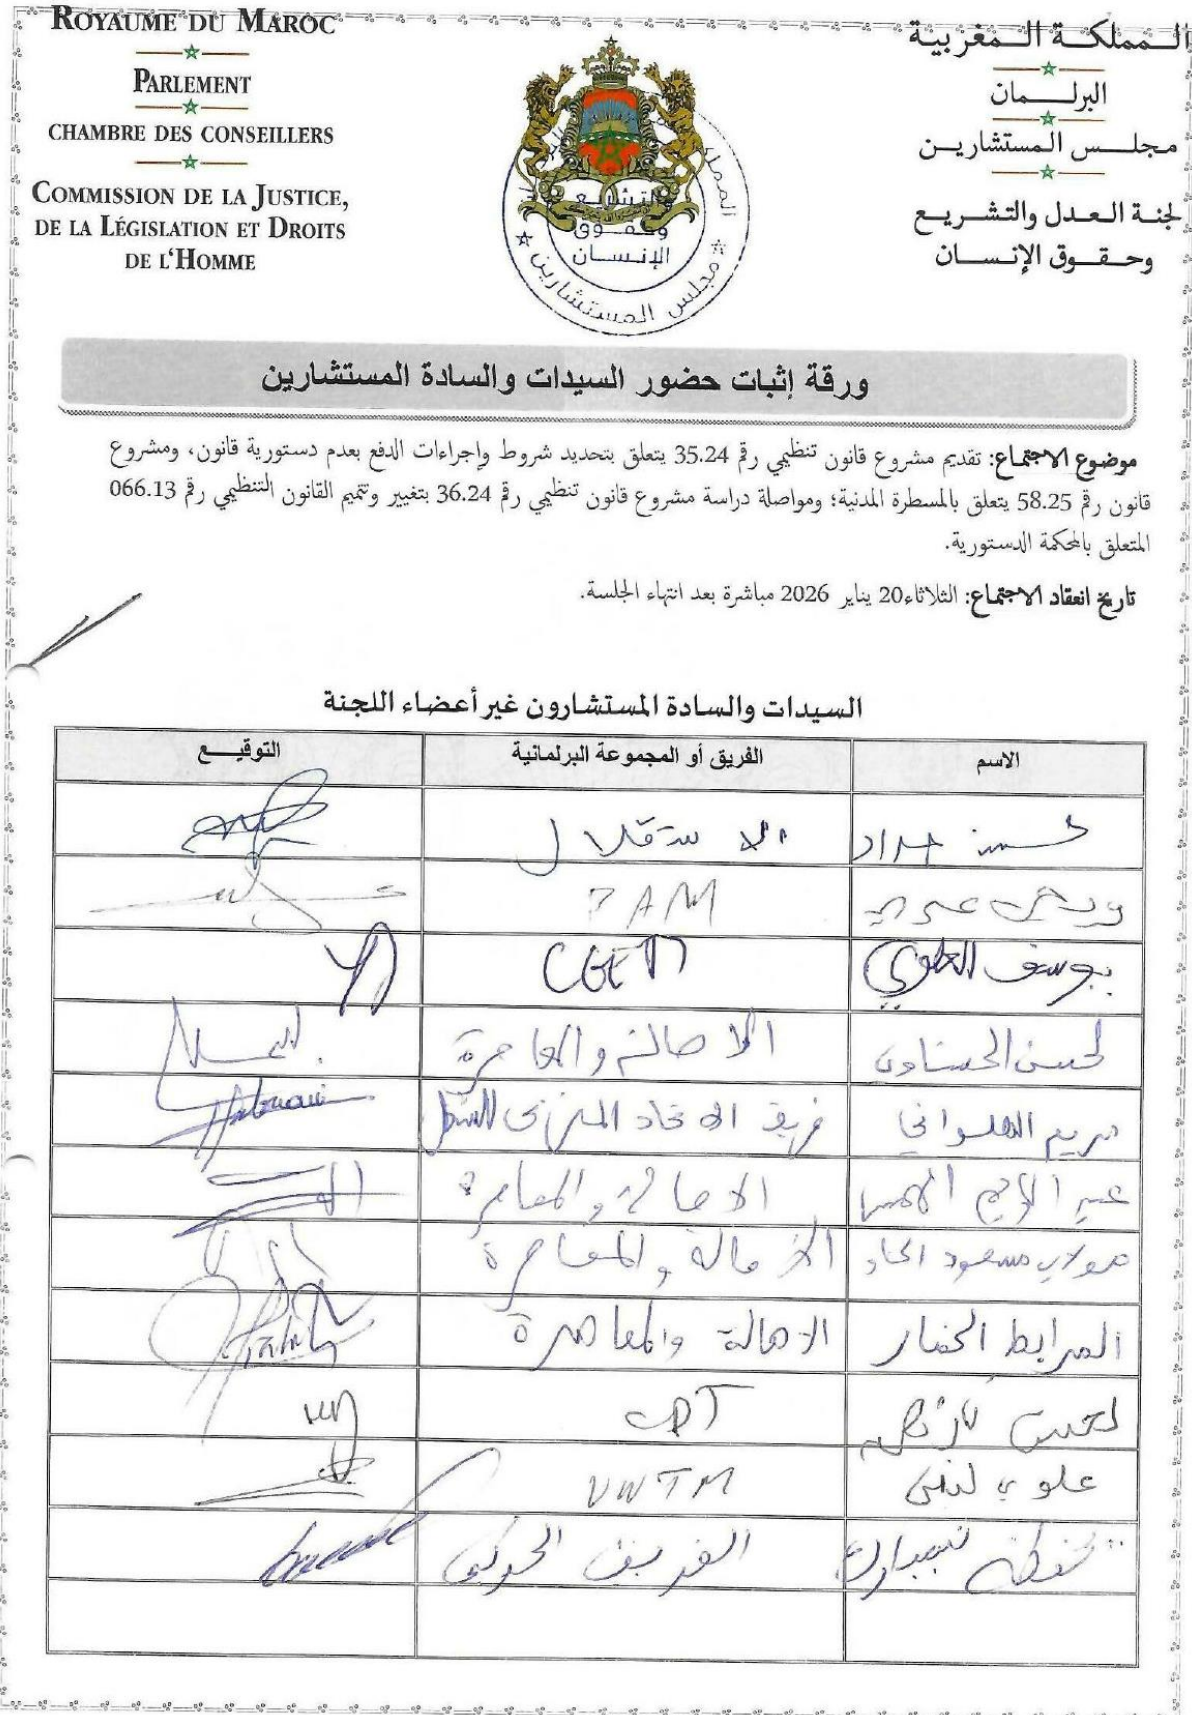 ROYAUME DU MAROC
PARLEMENT
CHAMBRE DES CONSEILLERS
COMMISSION DE LA JUSTICE,
DE LA LÉGISLATION ET DROITS
DE L'HOMME
المملكة المغربية
البرلمان
مجلس المستشارين
لجنة العدل والتشريع
وحقوق الإنسان
التشريع
وحقوق
الإنسان
مجلس المستشارين
ورقة إثبات حضور السيدات والسادة المستشارين
موضوع الاجتماع: تقديم مشروع قانون تنظيمي رقم 35.24 يتعلق بتحديد شروط وإجراءات الدفع بعدم دستورية قانون، ومشروع
قانون رقم 58.25 يتعلق بالمسطرة المدنية؛ ومواصلة دراسة مشروع قانون تنظيمي رقم 36.24 بتغيير وتتميم القانون التنظيمي رقم 066.13
المتعلق بالمحكمة الدستورية.
تاريخ انعقاد الاجتماع: الثلاثاء20 يناير 2026 مباشرة بعد انتهاء الجلسة.
السيدات والسادة المستشارون غير أعضاء اللجنة
الاسم الفريق أو المجموعة البرلمانية التوقيع
لحسن حداد الاستقلال
PAM
يوسف العلوي CGEM
لحسن الحسناوي الاصالة والمعاصرة
مريم الهلواني فريق الاتحاد المغربي للشغل
عبد الاصالة والمعاصرة
مولاي مسعود الاصالة والمعاصرة
المرابط الخمار الاصالة والمعاصرة
لحسن نازهي CDT
علوي لبنى UNTM
يفطة نمبارك الفريق الحركي